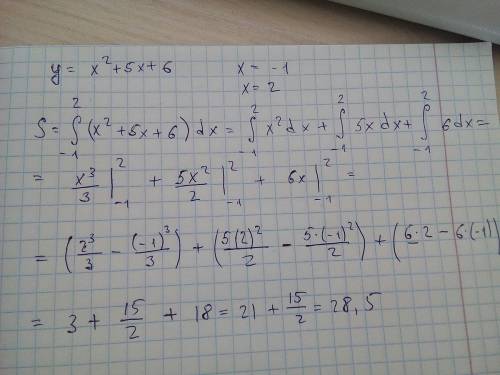 y = x² + 5x + 6    x = -1
x = 2
S = ∫₋₁² (x² + 5x + 6) dx = ∫₋₁² x² dx + ∫₋₁² 5x dx + ∫₋₁² 6 dx =
= x³/3 |₋₁² + 5x²/2 |₋₁² + 6x |₋₁² =
= (2³/3 - (-1)³/3) + (5(2)²/2 - 5·(-1)²/2) + (6·2 - 6·(-1))
= 3 + 15/2 + 18 = 21 + 15/2 = 28,5